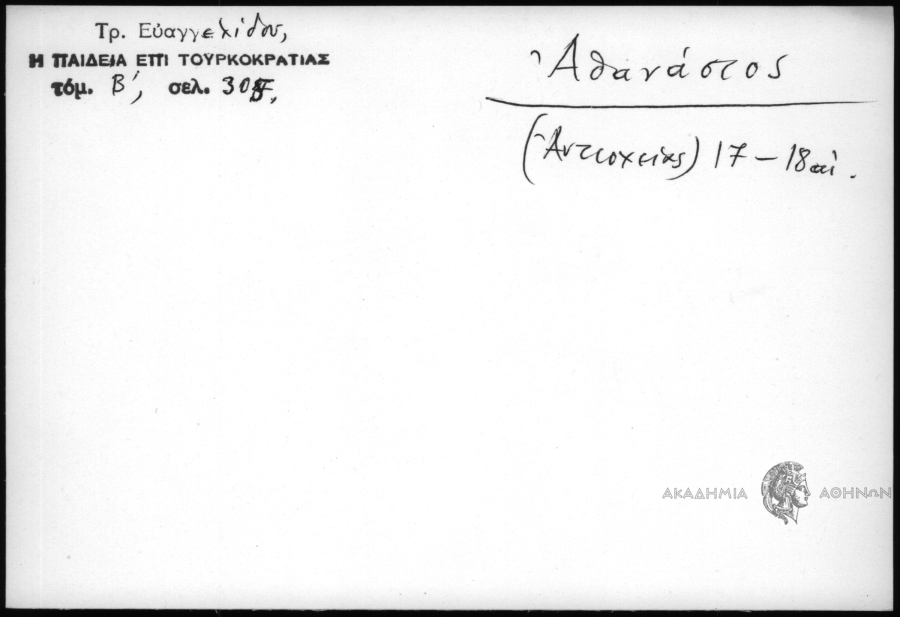 Τρ. Εὐαγγελίδου,
Η ΠΑΙΔΕΙΑ ΕΠΙ ΤΟΥΡΚΟΚΡΑΤΙΑΣ
τόμ. Β', σελ.
Ἀθανάσιος
(Ἀντιοχείας) 17 – 18 αἰ.
ΑΚΑΔΗΜΙΑ ΑΘΗΝΩΝ